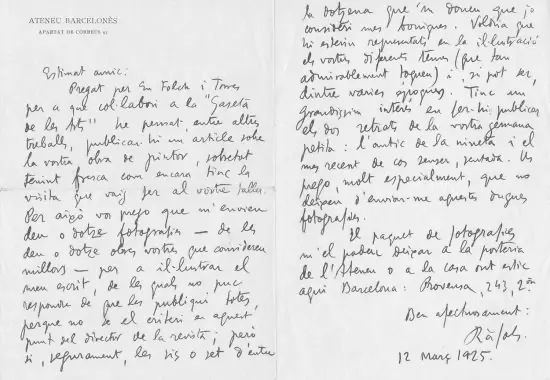 ATENEU BARCELONÈS
APARTAT DE CORREUS
Estimat amic:
Pregat per En Folch i Torres
per a que col·labori a la "Gaseta
de les Arts" he pensat, entre altres
treballs, publicar-hi un article sobre
la vostra obra de pintor, sobretot
tenint fresca com encara tinc la
visita que vaig fer al vostre taller.
Per això vos prego que m'envieu
deu o dotze fotografies — de les
deu o dotze obres vostres que considereu
millors — per a il·lustrar el
meu escrit, de les quals no puc
respondre de que les publiqui totes,
perque no sé el criteri en aquest
punt del director de la revista; però
si, segurament, les sis o set d'entre
la dotzena que 'm doneu que jo
consideri mes boniques. Voldria que
hi estessin representats en la il·lustració
els vostres diferents temes (que tan
admirablement toqueu) i, si pot ser,
dintre varies epoques. Tinc un
grandissim interés en fer-hi publicar
els dos retrats de la vostra germana
petita: l'antic de la nineta i el
mes recent de cos sencer, sentada. Us
prego, molt especialment, que no
deixeu d'enviar-me aquestes dugues
fotografies.
El paquet de fotografies
m'el podeu deixar a la porteria
de l'Ateneu o a la casa ont estic
aqui Barcelona: Provensa, 243, 2on
Ben afectuosament:
Ràfols
12 Març 1925.